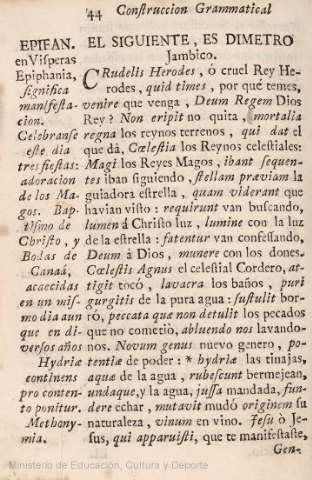 44 Construccion Grammatical
EPIFAN.
en Visperas
Epiphania,
significa
manifesta-
cion.
Celebranse
este dia
tres fiestas:
adoracion
de los Ma-
gos. Bap-
tismo de
Christo, y
Bodas de
Canaá,
acaecidas
en un mis-
mo dia aun
que en di-
versos años
Hydriæ
continens
pro conten-
to ponitur.
Methony-
mia.
EL SIGUIENTE, ES DIMETRO
Jambico.
CRudelis Herodes, ó cruel Rey He-
rodes, quid times, por qué temes,
venire que venga, Deum Regem Dios
Rey? Non eripit no quita, mortalia
regna los reynos terrenos, qui dat el
que dá, Cœlestia los Reynos celestiales:
Magi los Reyes Magos, ibant sequen-
tes iban siguiendo, stellam præviam la
guiadora estrella, quam viderant que
havian visto: requirunt van buscando,
lumen á Christo luz, lumine con la luz
de la estrella: fatentur van confessando,
Deum à Dios, munere con los dones.
Cœlestis Agnus el celestial Cordero, at-
tigit tocó, lavacra los baños, puri
gurgitis de la pura agua: sustulit bor-
ró, peccata que non detulit los pecados
que no cometiò, abluendo nos lavando-
nos. Novum genus nuevo genero, po-
tentiæ de poder: * hydriæ las tinajas,
aquæ de la agua, rubescunt bermejean,
undaque, y la agua, jussa mandada, fun-
dere echar, mutavit mudó originem su
naturaleza, vinum en vino. Jesu ò Je-
sus, qui apparuisti, que te manifestaste,
Gen-
Ministerio de Educación, Cultura y Deporte